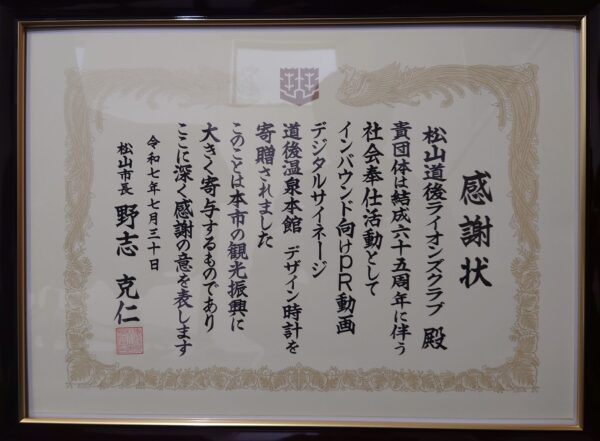 感謝状
松山道後ライオンズクラブ 殿
貴団体は結成六十五周年に伴う
社会奉仕活動として
インバウンド向けPR動画
デジタルサイネージ
道後温泉本館 デザイン時計を
寄贈されました
このことは本市の観光振興に
大きく寄与するものであり
ここに深く感謝の意を表します
令和七年七月三十日
松山市長 野志 克仁